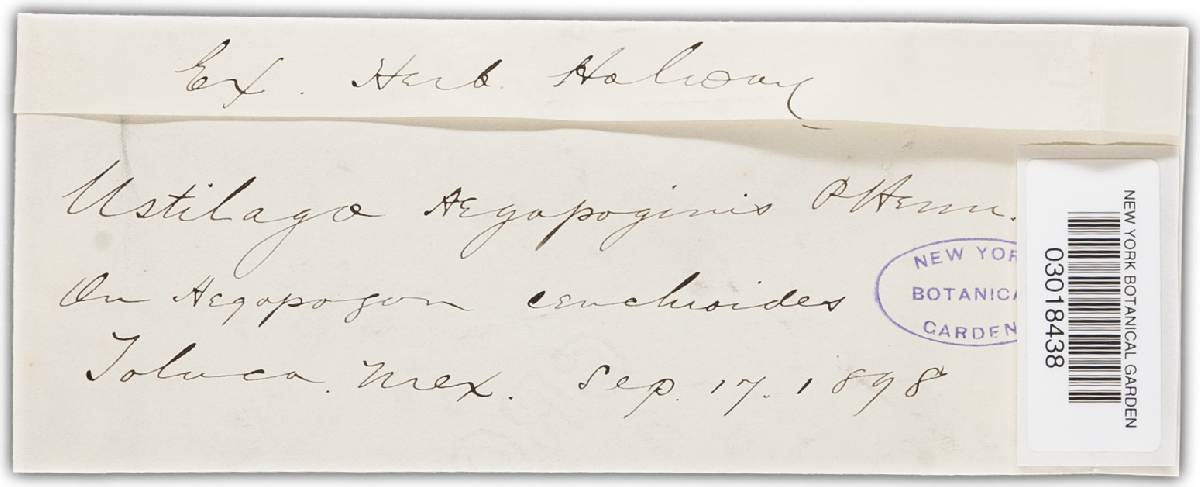 Ex. Herb. Holway
Ustilago Aegopoginis P Henn.
On Aegopogon cenchroides
Toluca. Mex. Sep. 17. 1898
NEW YOR
BOTANICA
GARDEN
NEW YORK BOTANICAL GARDEN
03018438